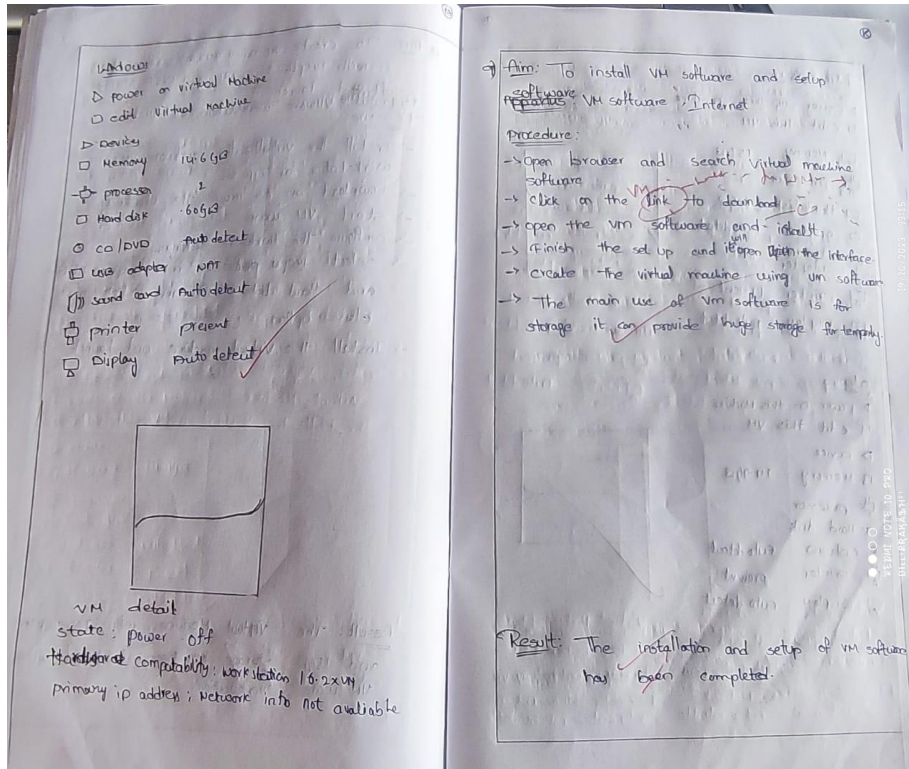 Windows
▷ power on virtual Machine
□ edit virtual machine
▷ Devices
□ Memory 14.6 GB
processor 2
□ Hard disk 60GB
CD/DVD Auto detect
adapter NAT
sound card Auto detect
printer present
Display Auto detect
VM detail
state : power off
computability : workstation 16.2x VM
primary ip address ; Network info not avaliable
Aim: To install VM software and setup
software
Appartus: VM software, Internet
Procedure:
-> Open browser and search virtual machine
software
VM
-> click on the link to download
-> open the vm software and install
-> Finish the set up and open with the Interface
-> create the virtual machine using vm software
-> The main use of vm software is for
storage it can provide huge storage for
Result: The installation and setup of VM software
has been completed.
REDMI NOTE 10 PRO